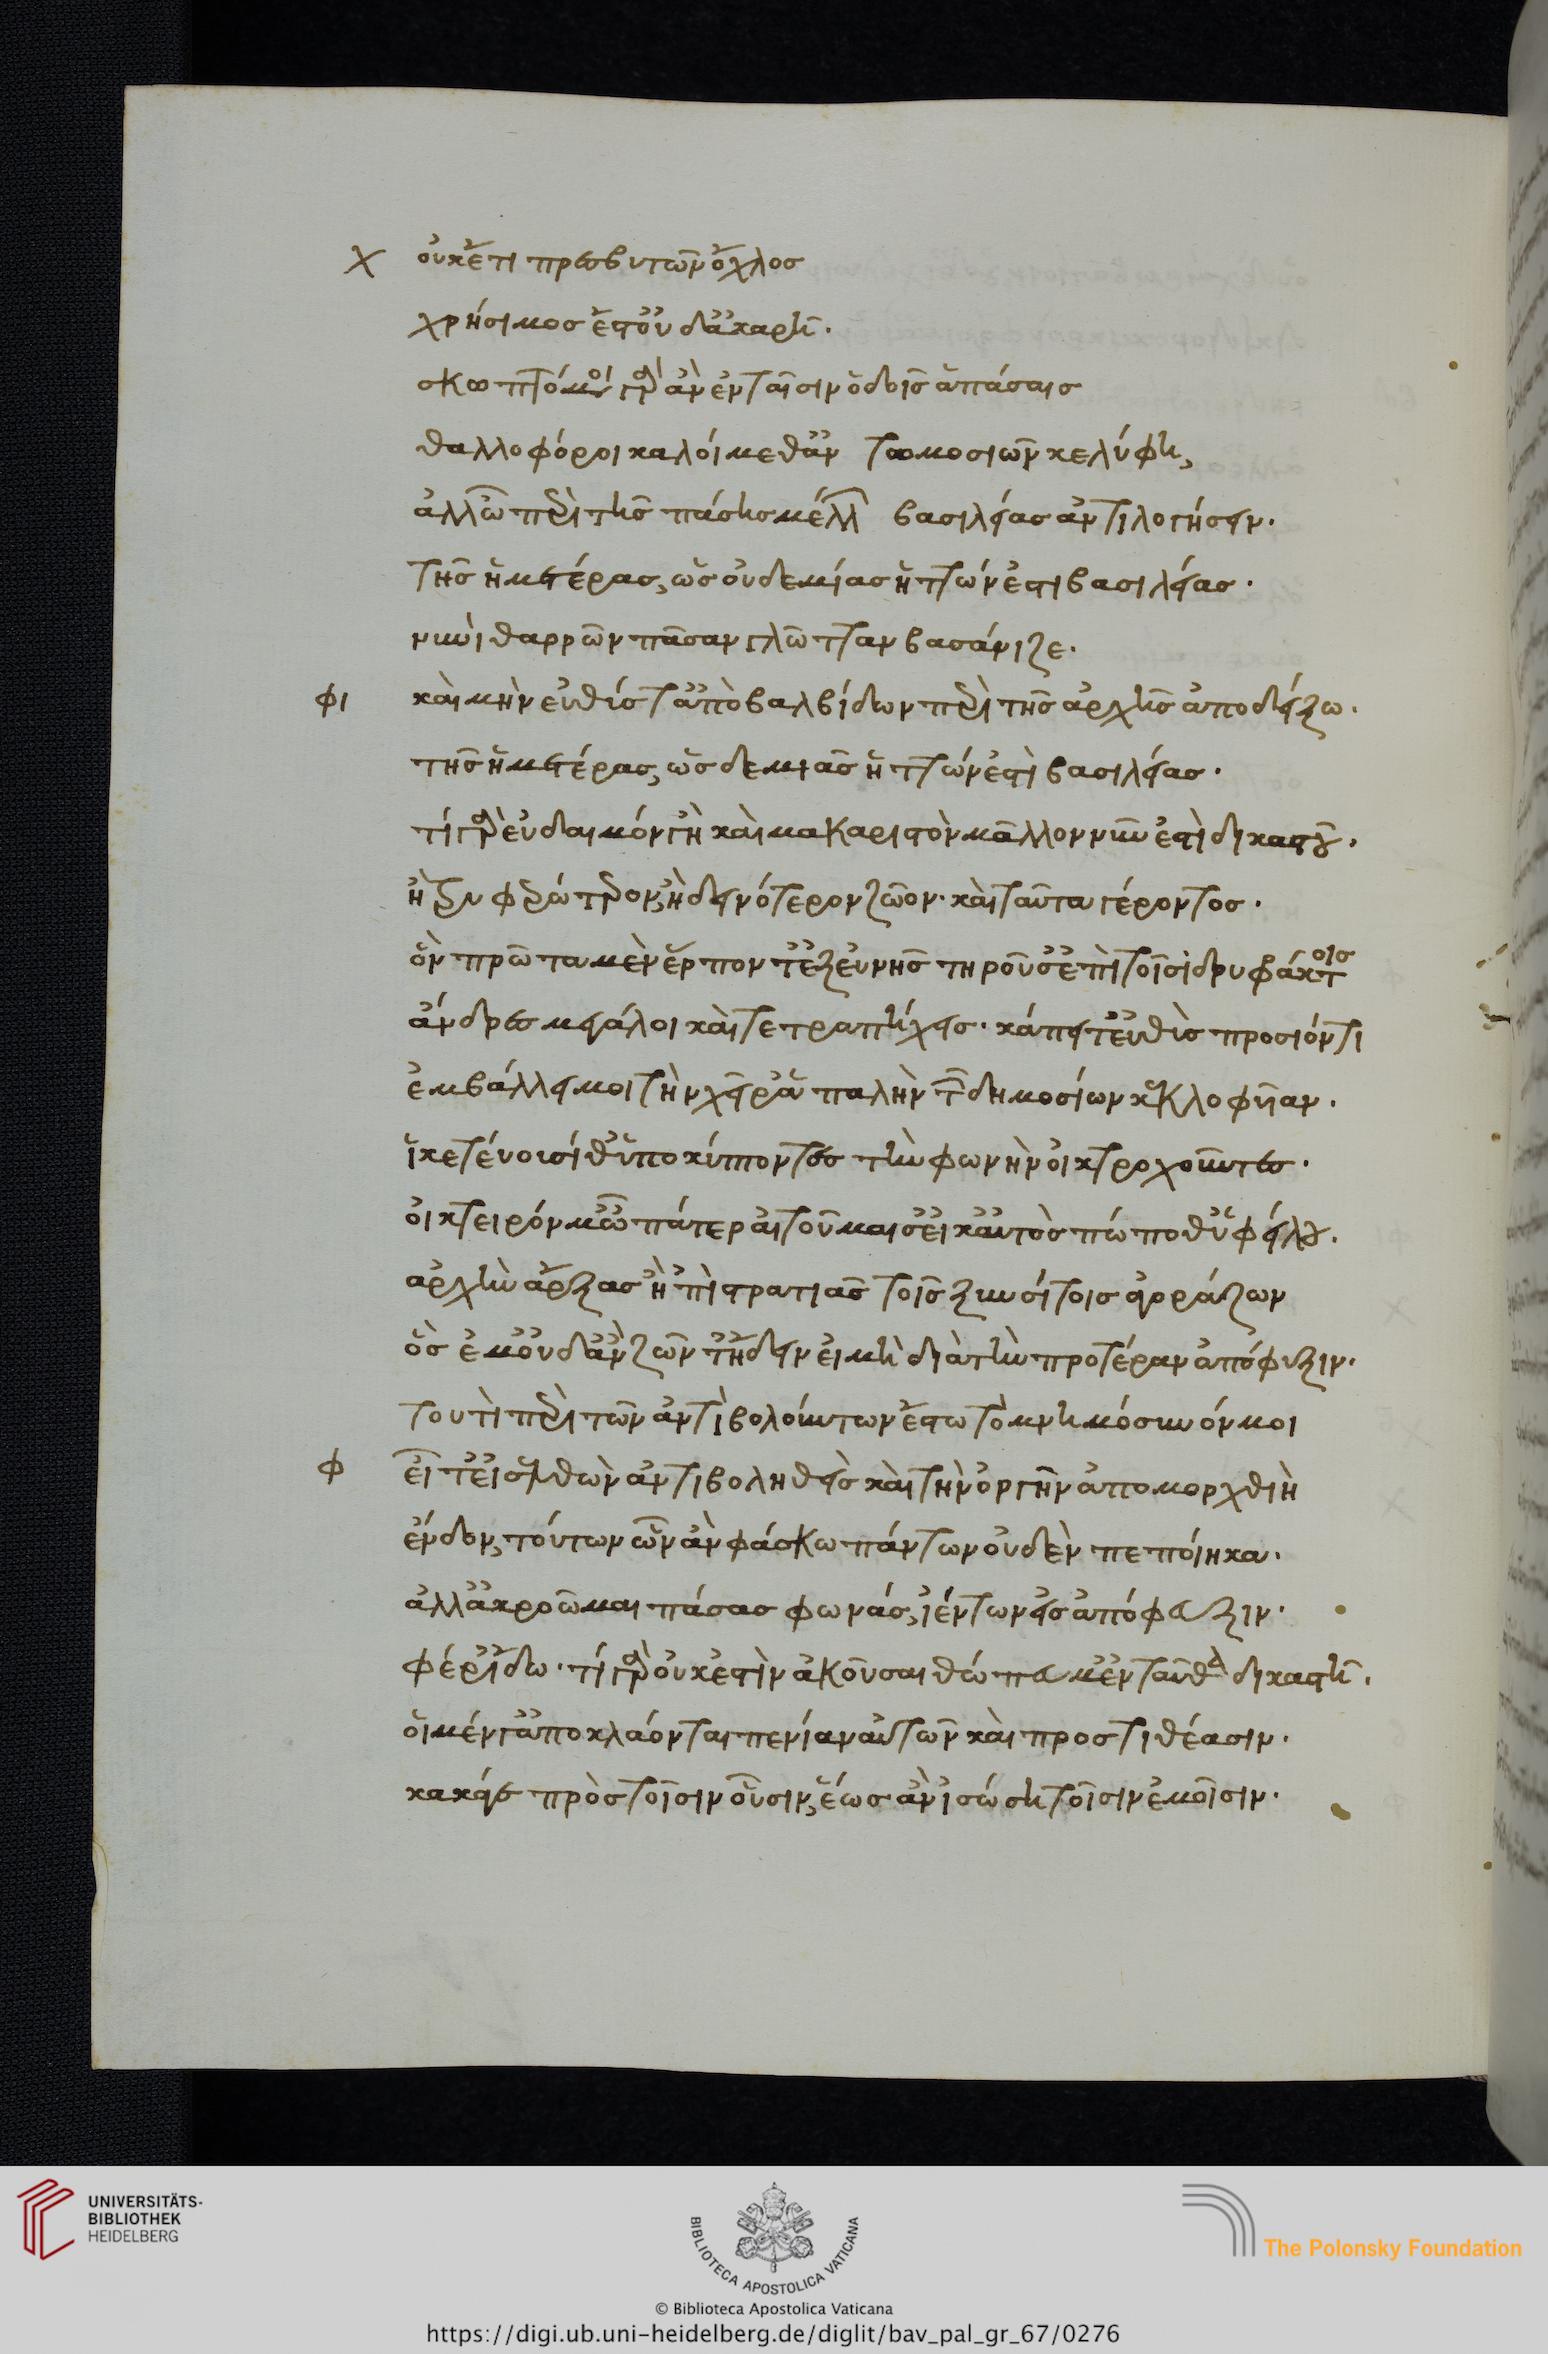 χ οὐκέτι πρεσβυτῶν ὄχλος
χρήσιμος ἔστ' οὐδ' ἀκαρῆ.
σκωπτόμενοι γὰρ ἂν ἐν ταῖσιν ὁδοῖς ἁπάσαις
θαλλοφόροι καλοίμεθ' ἂν τωμοσιῶν κελύφη,
ἀλλ' ὦ περὶ τῆς πάσης μέλλων βασιλείας ἀντιλογήσειν.
τῆς ἡμετέρας, ὡς οὐδεμίας ἥττων ἐστι βασιλείας.
νυνὶ θαρρῶν πᾶσαν γλῶτταν βασάνιζε.
φι καὶ μὴν εὐθύς γ' ἀπὸ βαλβίδων περὶ τῆς ἀρχῆς ἀποδείξω.
τῆς ἡμετέρας, ὡς δεμιᾶς ἥττων ἐστὶ βασιλείας.
τί γὰρ εὐδαιμόν γ' ἢ καὶ μακαριστὸν μᾶλλον νῦν ἐστὶ δικαστοῦ.
ἢ τρυφερώτερον, ἢ δεινότερον ζῶον. καὶ ταῦτα γέροντος.
ὃν πρῶτα μὲν ἕρποντ' ἐξ εὐνῆς τηροῦσ' ἐπὶ τοῖσι δρυφάκτοις
ἄνδρες μεγάλοι καὶ τετραπήχεις. κἄπειτ' εὐθὺς προσιόντι
ἐμβάλλει μοι τὴν χεῖρ' ἁπαλὴν τῶν δημοσίων κεκλοφυῖαν.
ἱκετεύουσί θ' ὑποκύπτοντες τὴν φωνὴν οἰκτροχοοῦντες.
οἴκτειρόν μ' ὦ πάτερ αἰτοῦμαι σ' εἰ καὐτὸς πώποθ' ὑφείλου.
ἀρχὴν ἄρξας ἢ 'πὶ στρατιᾶς τοῖς ξυσσίτοις ἀγοράζων
ὃς ἔμ' οὐδ' ἂν ζῶντ' ᾔδειν εἰ μὴ διὰ τὴν προτέραν ἀπόφυξιν.
τουτὶ περὶ τῶν ἀντιβολούντων ἔστω τὸ μνημόσυνόν μοι
φ εἶτ' εἰσελθὼν ἀντιβοληθεὶς καὶ τὴν ὀργὴν ἀπομορχθεὶς
ἔνδον, τούτων ὧν ἂν φάσκω πάντων οὐδὲν πεποίηκα.
ἀλλ' ἀκροῶμαι πάσας φωνάς, ἱέντων εἰς ἀπόφευξιν.
φέρ' ἴδω. τί γὰρ οὐκ ἐστὶν ἀκοῦσαι θώπευμ' ἐνταῦθα δικαστῆ.
οἱ μέν γ' ἀποκλάονται πενίαν αὑτῶν καὶ προστιθέασιν.
κακά πρὸς τοῖσιν οὖσιν, ἕως ἂν ἰσώση τοῖσιν ἐμοῖσιν.
UNIVERSITÄTS-
BIBLIOTHEK
HEIDELBERG
BIBLIOTECA APOSTOLICA VATICANA
The Polonsky Foundation
© Biblioteca Apostolica Vaticana
https://digi.ub.uni-heidelberg.de/diglit/bav_pal_gr_67/0276